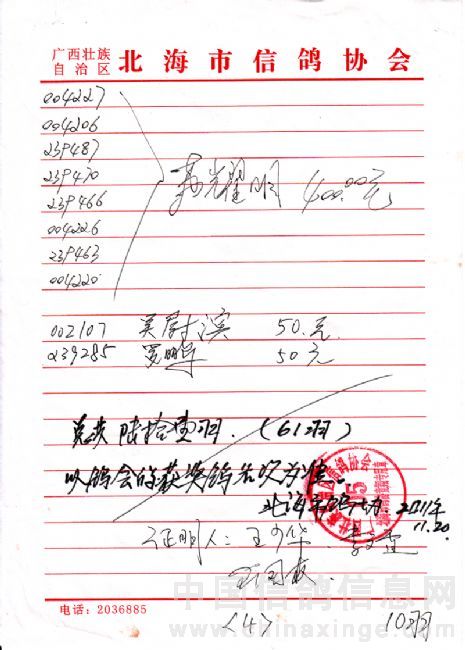 广西壮族自治区 北海市信鸽协会
004227
004206
239487
239470
239466
004226
239463
004220
苏耀明 400.00元
002107 吴尉滨 50.元
239285 50元
总共陆拾壹羽.(61羽)
以鸽会的获奖鸽名次为准。
北海 2011年
11.20.
证明人:王少华.
电话:2036885
(4)
10羽
中国信鸽信息网
www.chinaxinge.com